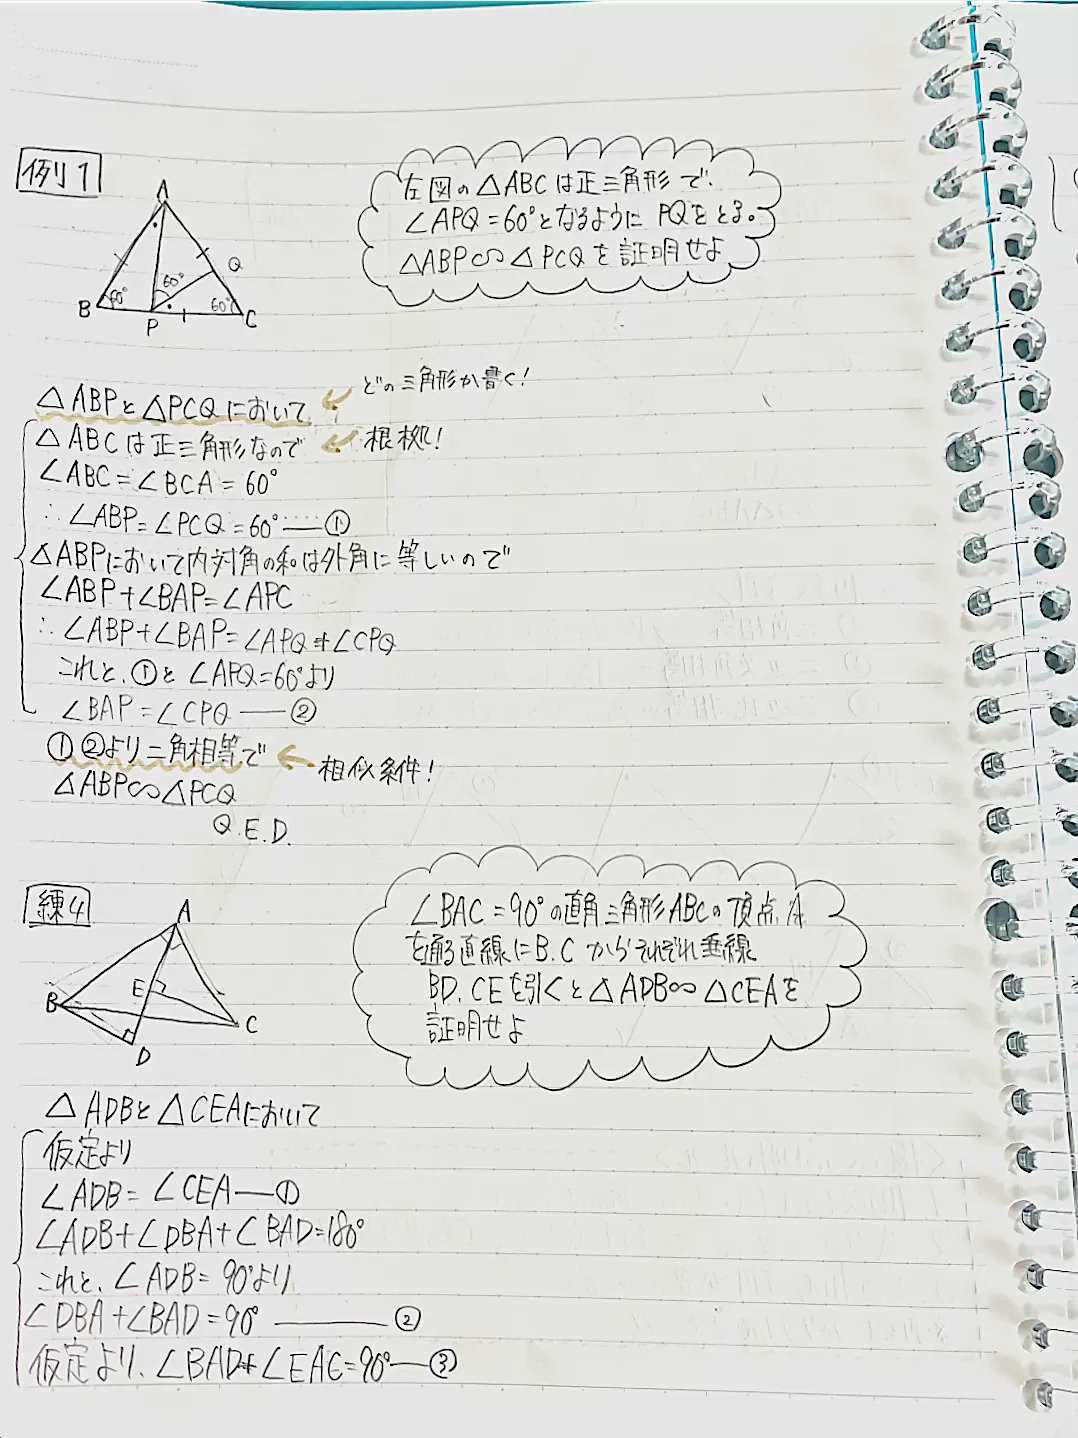 例1
左図の△ABCは正三角形で、
∠APQ=60°となるようにPQをとる。
△ABP∽△PCQを証明せよ
A
Q
60°
B 60° 60° C
P
どの三角形か書く!
△ABPと△PCQにおいて
△ABCは正三角形なので 根拠!
∠ABC=∠BCA=60°
∴∠ABP=∠PCQ=60°―①
△ABPにおいて内対角の和は外角に等しいので
∠ABP+∠BAP=∠APC
∴∠ABP+∠BAP=∠APQ+∠CPQ
これと、①と∠APQ=60°より
∠BAP=∠CPQ―②
①②より二角相等で 相似条件!
△ABP∽△PCQ
Q.E.D.
練4
∠BAC=90°の直角三角形ABCの頂点A
を通る直線にB.Cからそれぞれ垂線
BD.CEを引くと△ADB∽△CEAを
証明せよ
A
E
B
C
D
△ADBと△CEAにおいて
仮定より
∠ADB=∠CEA―①
∠ADB+∠DBA+∠BAD=180°
これと、∠ADB=90°より
∠DBA+∠BAD=90°―②
仮定より、∠BAD+∠EAC=90°―③